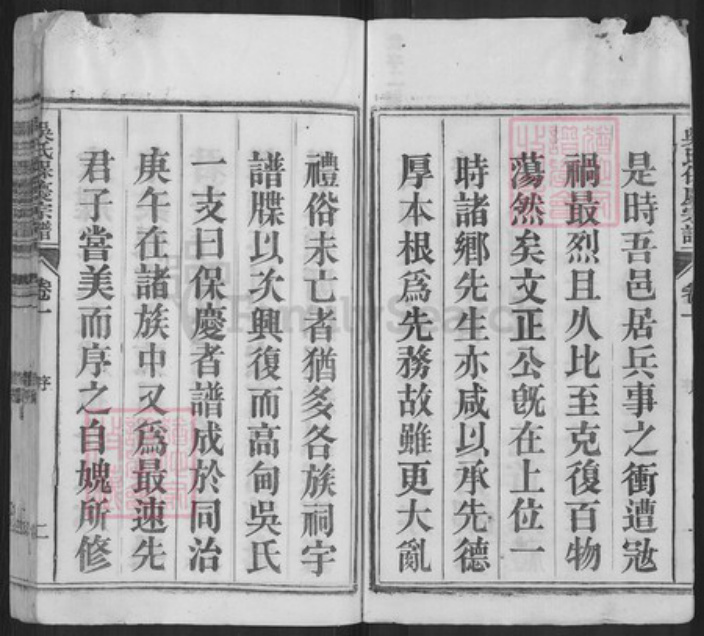 是時吾邑居兵事之衝遭冦
禍最烈且久比至克復百物
蕩然矣文正公旣在上位一
時諸鄉先生亦咸以承先德
厚本根爲先務故雖更大亂
禮俗未亡者猶多各族祠宇
譜牒以次興復而高甸吳氏
一支曰保慶者譜成於同治
庚午在諸族中又爲最速先
君子嘗美而序之自媿所修
吳氏保慶宗譜
卷一
序
二
FamilySearch